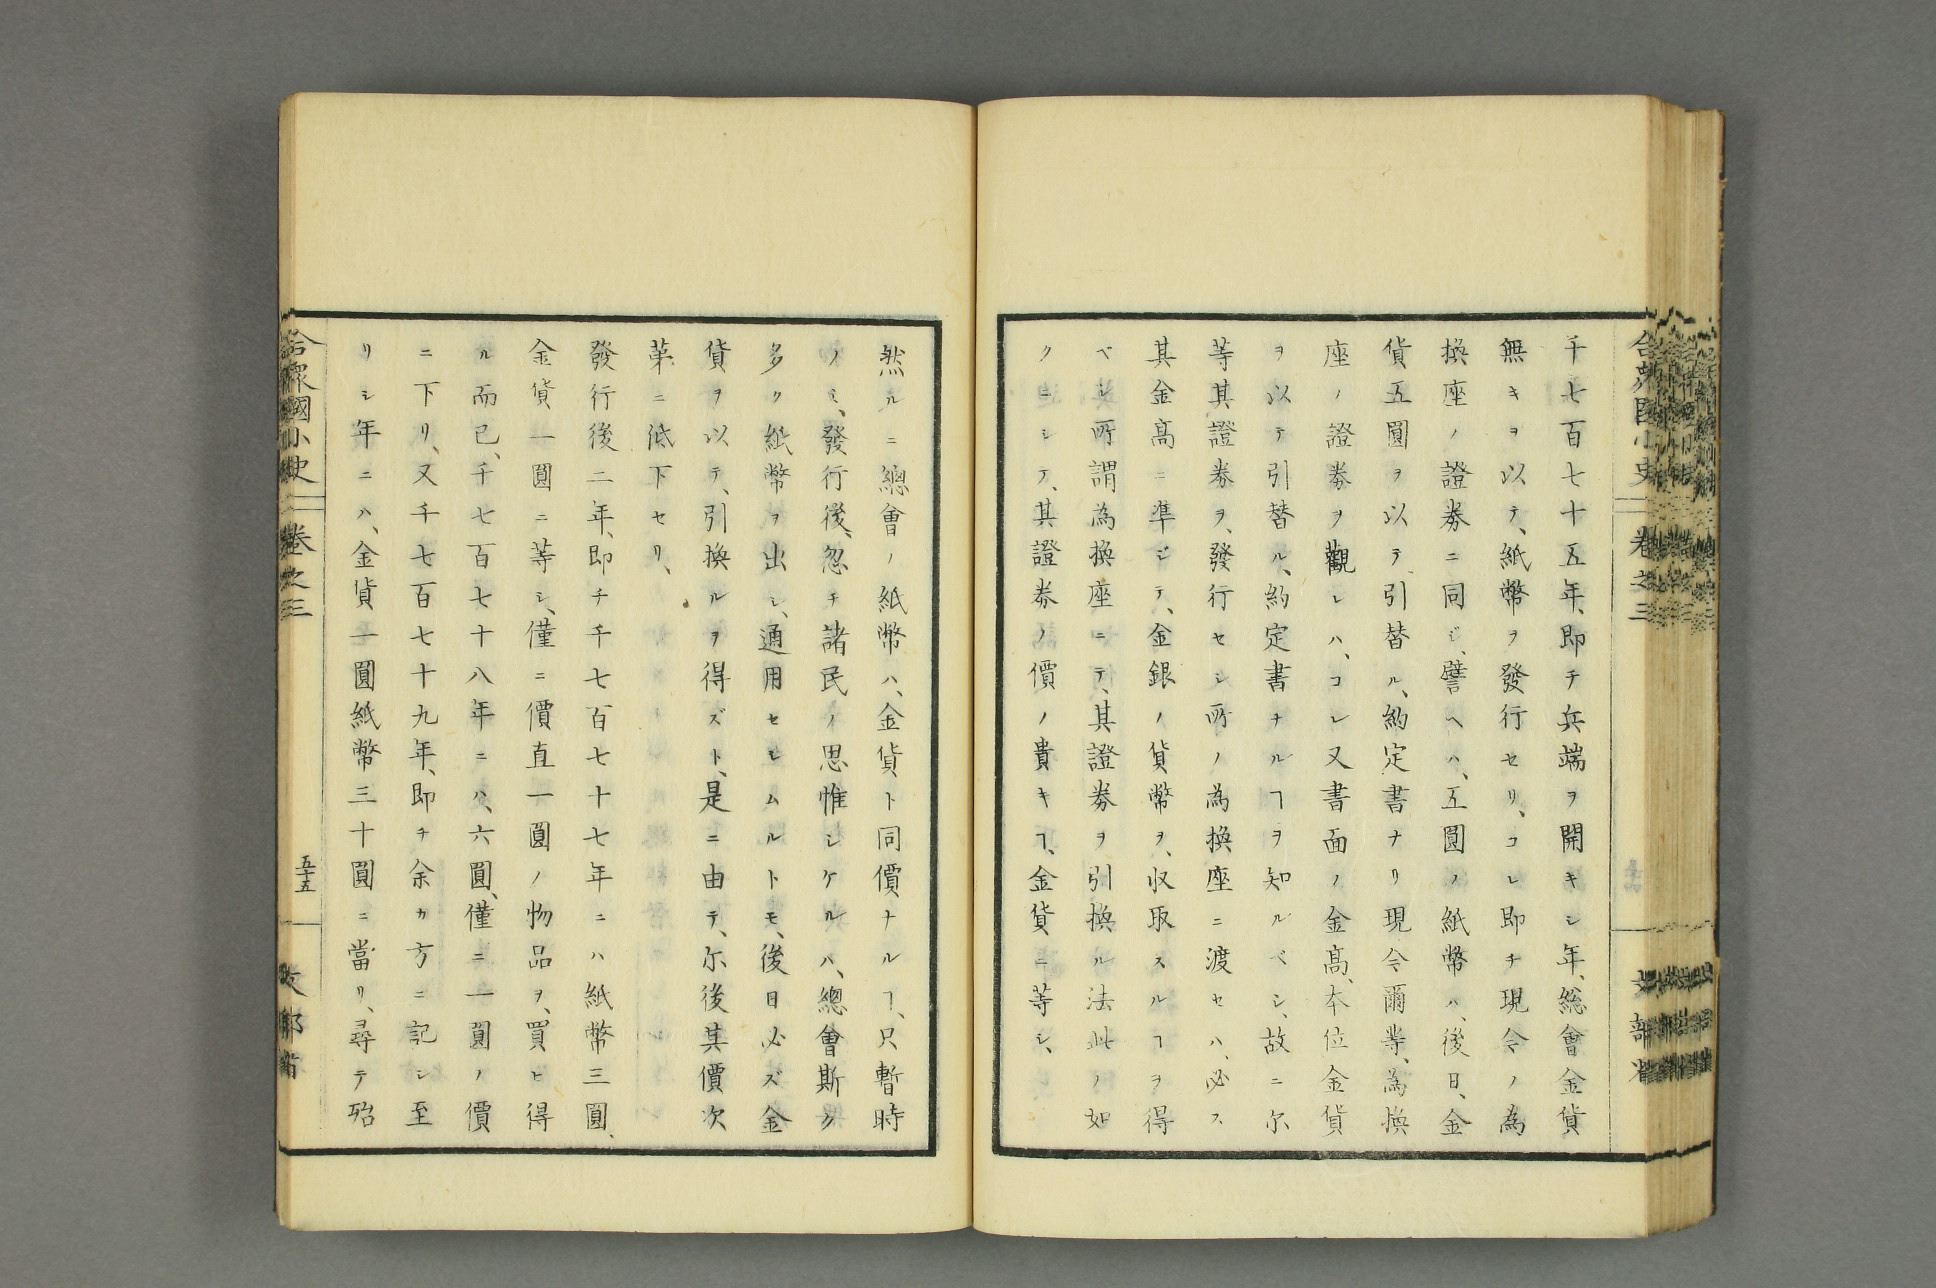 千七百七十五年、即チ兵端ヲ開キシ年、総會金貨
無キヲ以テ、紙幣ヲ發行セリ、コレ即チ現今ノ為
換座ノ證券ニ同ジ、譬ヘハ、五圓ノ紙幣ハ、後日、金
貨五圓ヲ以テ引替ル、約定書ナリ現今爾等、為換
座ノ證券ヲ觀レハ、コレ又書面ノ金高、本位金貨
ヲ以テ引替ル、約定書ナルヿヲ知ルベシ、故ニ尓
等其證券ヲ、發行セシ所ノ為換座ニ渡セハ、必ス
其金高ニ準ジテ、金銀ノ貨幣ヲ、収取スルヿヲ得
ベシ所謂為換座ニテ、其證券ヲ引換ル法此ノ如
クニシテ、其證券ノ價ノ貴キヿ、金貨ニ等シ、
然ルニ總會ノ紙幣ハ、金貨ト同價ナルヿ、只暫時
ノミ、發行後、忽チ諸民ノ思惟シケルハ、總會斯ク
多ク紙幣ヲ出シ、通用セシムルトモ、後日必ズ金
貨ヲ以テ、引換ルヲ得ズト、是ニ由テ、尓後其價次
第ニ低下セリ、
發行後二年、即チ千七百七十七年ニハ紙幣三圓、
金貨一圓ニ等シ、僅ニ價直一圓ノ物品ヲ、買ヒ得
ル而已、千七百七十八年ニハ、六圓、僅ニ一圓ノ價
ニ下リ、又千七百七十九年、即チ余カ方ニ記シ至
リシ年ニハ、金貨一圓紙幣三十圓ニ當リ、尋テ殆
合衆國小史 卷之三 五十五 文部省